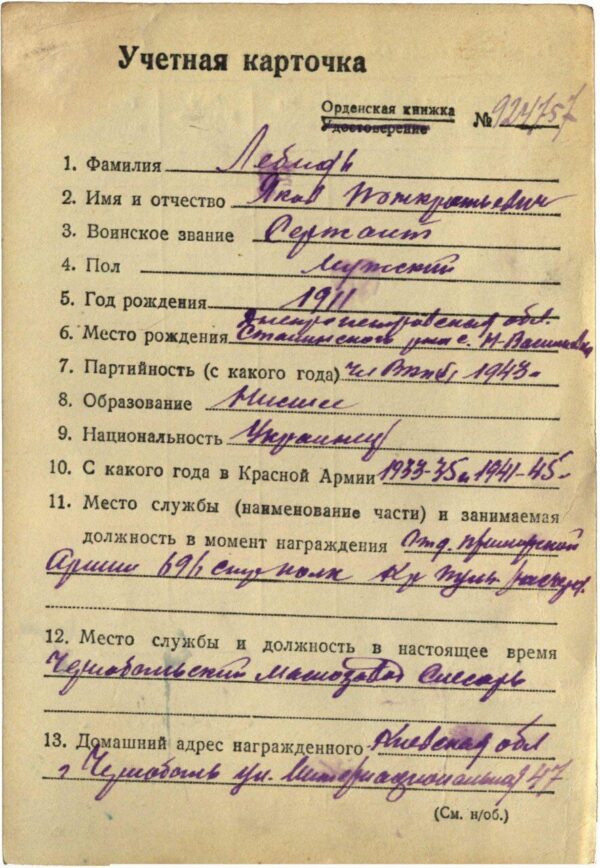 Учетная карточка
Орденская книжка
Удостоверение
№ 924757
1. Фамилия Лебидь
2. Имя и отчество Яков Понкратьевич
3. Воинское звание Сержант
4. Пол Мужский
5. Год рождения 1911
Днепропетровская обл.
6. Место рождения Сталинского р-на с. Н-
7. Партийность (с какого года) чл ВКПб 1943-
8. Образование Низшее
9. Национальность Украинец
10. С какого года в Красной Армии 1933-35 и 1941-45-
11. Место службы (наименование части) и занимаемая
должность в момент награждения Отд. Приморской
Армии 696 стр полк к-р пуль расчета
12. Место службы и должность в настоящее время
Чернобольский Маслозавод Слесарь
13. Домашний адрес награжденного Киевская обл
г Чернобыль ул. Интернациональная 47
(См. н/об.)